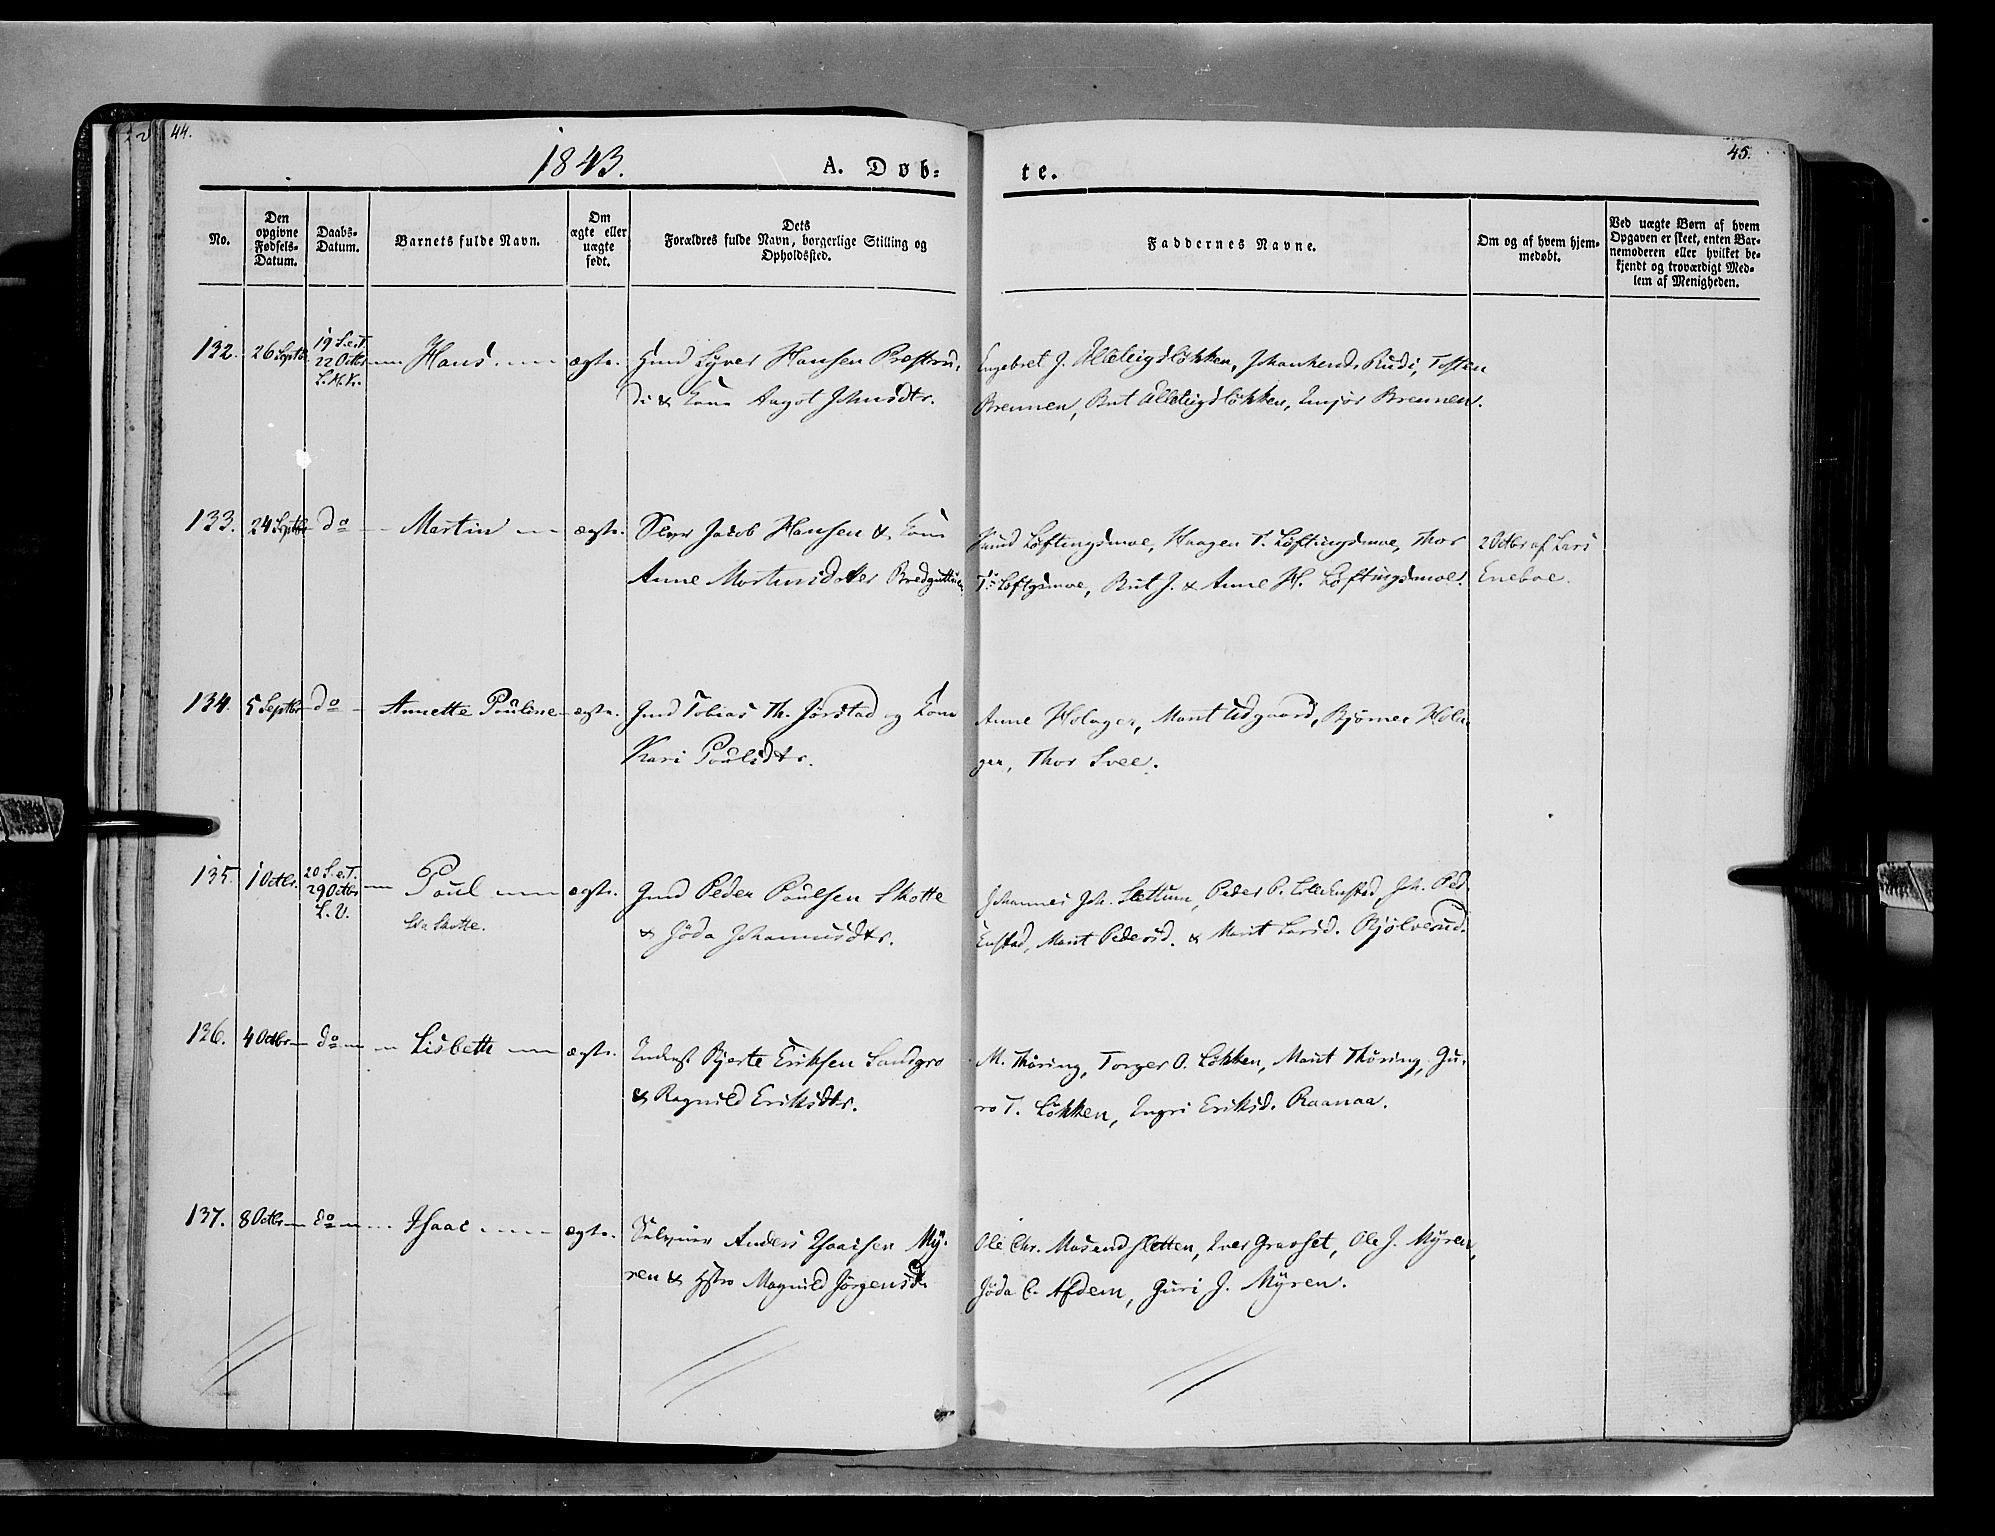 44.
1843.
A. Døb-
te.
45.
No.
Den opgivne Fødsels-Datum.
Daabs-Datum.
Barnets fulde Navn.
Om ægte eller uægte født.
Dets Forældres fulde Navn, borgerlige Stilling og Opholdssted.
Faddernes Navne.
Om og af hvem hjemmedøbt.
Ved uægte Børn af hvem Opgaven er skeet, enten Barnemoderen eller hvilket bekjendt og troværdigt Medlem af Menigheden.
132. 26 Septbr 19 S.e.T. 22 Octbr Hans ægte. Gmd Hansen Prestru-
di & Kone Aagot Johnsdtr.
Engebret J. Alleleigsløkken, Rudi, Tosten
Brennen, Brit Alleleigsløkken, Brennen.
133. 24 Septbr do Martin ægte. Jacob Hansen & Kone
Anne Mortensdatter
Løftingsmoe, Haagen T. Løftingsmoe, Thor
T. Løftgsmoe, Brit J. & Anne H. Løftingsmoe.
2 Octbr af Lars
Eneboe.
134. 5 Septbr do Annette Pauline ægte. Gmd Tobias Th. Jørstad og Kone
Kari Poulsdtr.
Anne Holager, Marit Udgaard, Bjørner Hola-
ger, Thor Svee.
135. 1 Octbr. 20 S.e.T. 29 Octbr Poul ægte. Gmd Peder Poulsen Skotte
Skotte.
& Jøda Johannesdtr.
Johannes Joh. Slettum, Peder P. Joh. Ped.
Enstad, Marit Pedersd. & Marit Larsd. Bjølverud.
136. 4 Octbr do Lisbeth ægte. Inderst Bjerte Eriksen Sandgro
& Ragnild Eriksdtr.
M. Thøring, Torger O. Løkken, Marit Thøring, Gu-
ro T. Løkken, Ingri Eriksd. Raanaa.
137. 8 Octbr do Isaac ægte. Anders Isaacsen My-
ren & Hstro Magnild Jørgensd.
Ole Chr. Mosendsletten, Iver Gravset, Ole J. Myren,
Jøda C. Afdem, Guri J. Myren.